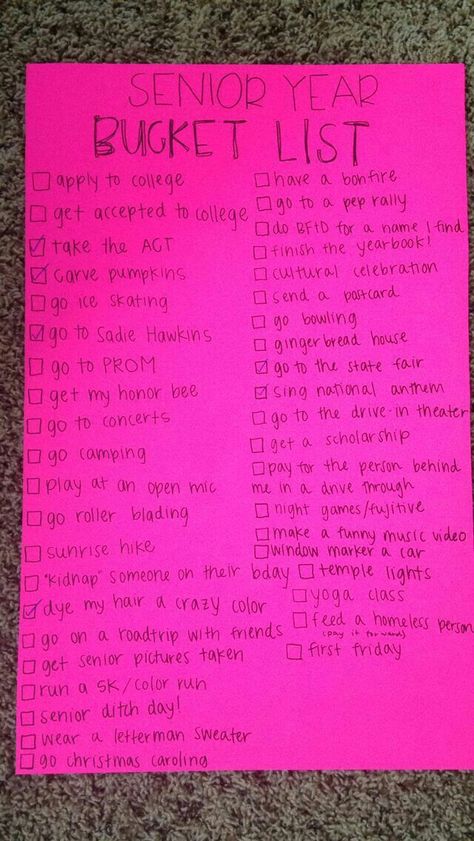 SENIOR YEAR
BUCKET LIST
apply to college
get accepted to college
take the ACT
carve pumpkins
go ice skating
go to Sadie Hawkins
go to PROM
get my honor bee
go to concerts
go camping
play at an open mic
go roller blading
sunrise hike
"kidnap" someone on their bday
dye my hair a crazy color
go on a roadtrip with friends
get senior pictures taken
run a 5K/color run
senior ditch day!
wear a letterman sweater
go christmas caroling
have a bonfire
go to a pep rally
do BFTD for a name I find
finish the yearbook!
cultural celebration
send a postcard
go bowling
gingerbread house
go to the state fair
sing national anthem
go to the drive-in theater
get a scholarship
pay for the person behind
me in a drive through
night games/fujitive
make a funny music video
window marker a car
temple lights
yoga class
feed a homeless person
(pay it forward)
first friday